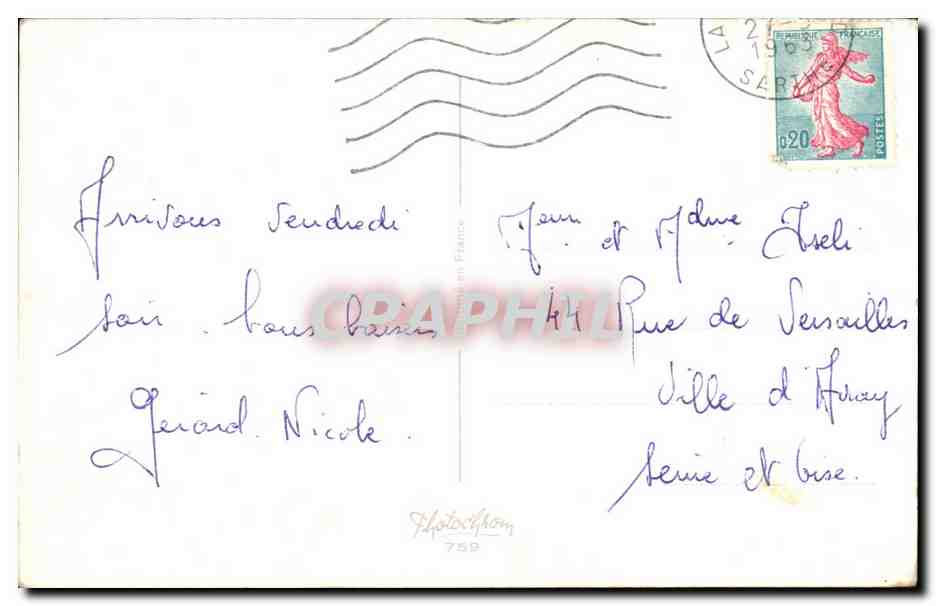 LA
1963
SARTHE
REPUBLIQUE FRANÇAISE
0,20
POSTES
Arrivons Vendredi
soir. bons baisers
Gérard. Nicole.
et Mdme Iseli
44 Rue de Versailles
Ville d'Avray
Seine et Oise.
en France
CRAPHIL
Photochrom
759